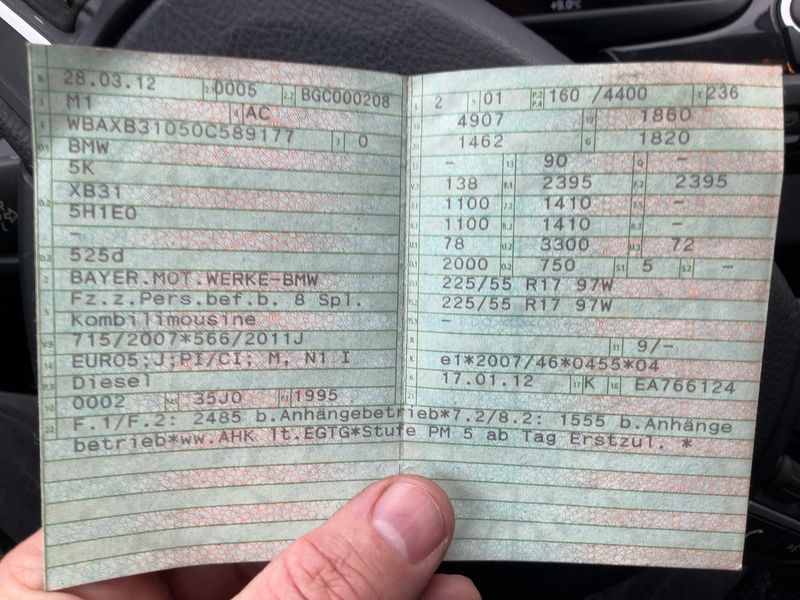 +9.0°C
28.03.12 2.1 0005 2.2 BGC000208
M1 4 AC
WBAXB31050C589177 3 0
BMW
5K
XB31
5H1E0
-
525d
BAYER.MOT.WERKE-BMW
Fz.z.Pers.bef.b. 8 Spl.
Kombilimousine
715/2007*566/2011J
EURO5;J;PI/CI; M, N1 I
Diesel
0002 35J0 P.1 1995
L 2 9 01 P.2 P.4 160 /4400 T 236
18 4907 19 1860
20 1462 G 1820
12 - 13 90 Q -
V.7 138 F.1 2395 F.2 2395
7.1 1100 7.2 1410 7.3 -
8.1 1100 8.2 1410 8.3 -
U.1 78 U.2 3300 U.3 72
O.1 2000 O.2 750 S.1 5 S.2 -
15.1 225/55 R17 97W
15.2 225/55 R17 97W
15.3 -
R 11 9/-
K e1*2007/46*0455*04
6 17.01.12 17 K 16 EA766124
21
F.1/F.2: 2485 b.Anhängebetrieb*7.2/8.2: 1555 b.Anhänge
betrieb*ww.AHK lt.EGTG*Stufe PM 5 ab Tag Erstzul. *